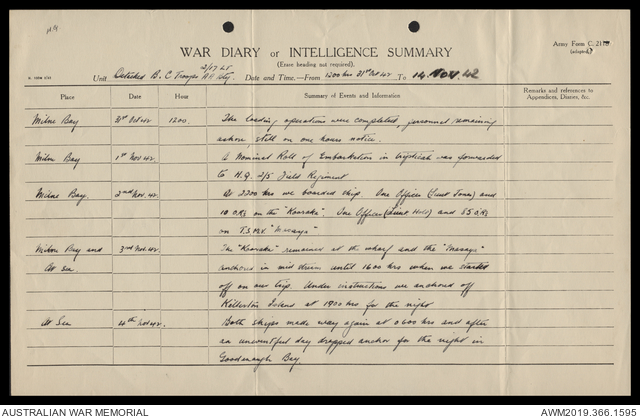 WAR DIARY or INTELLIGENCE SUMMARY
Army Form C. 2118
(adapted)
(Erase heading not required).
2/17 Lt
Unit Detached B. C Troops Bty. Date and Time.—From 1200 hrs 31st Oct 42 To 14 Nov. 42
Place Date Hour Summary of Events and Information Remarks and references to Appendices, Diaries, &c.
Milne Bay 31st Oct 42 1200. The loading operations were completed, personnel remaining
ashore, still on one hours notice.
Milne Bay 1st Nov 42. A Nominal Roll of Embarkation in was forwarded
to H.Q. 2/5 Field Regiment
Milne Bay. 2nd Nov. 42. At 2200 hrs we boarded ship. One Officer (Lieut Jones) and
10 O.Rs on the "Kooraka". One Officer (Lieut Hill) and 85 O.Rs
on T.S.M.V. "Masaya"
Milne Bay and 3rd Nov. 42. The "Kooraka" remained at the wharf and the "Masaya"
At sea. anchored in mid stream until 1600 hrs when we started
off on our trip. Under instructions we anchored off
Killerton Island at 1900 hrs for the night
At Sea 4th Nov 42. Both ships made way again at 0600 hrs and after
an uneventful day dropped anchor for the night in
Goodenough Bay.
AUSTRALIAN WAR MEMORIAL AWM2019.366.1595